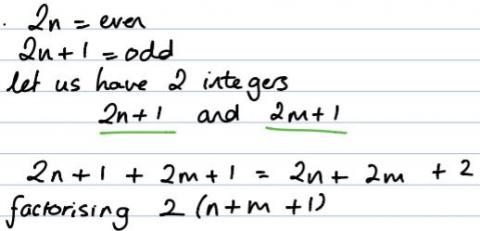 . 2n = even
2n+1 = odd
let us have 2 integers
2n+1 and 2m+1
2n+1 + 2m+1 = 2n+ 2m + 2
factorising 2 (n+m +1)